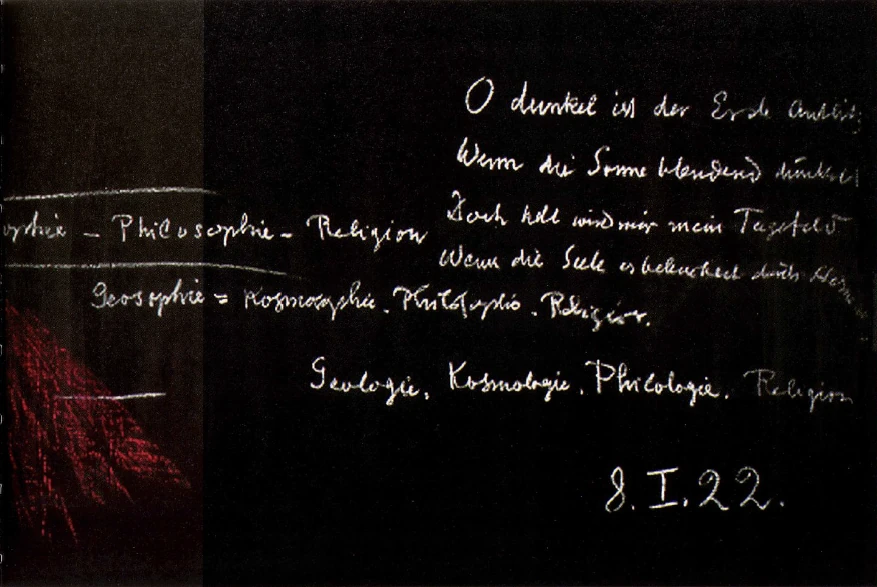 O dunkel ist der Erde Antlitz
Wenn die Sonne blendend dunkelt
Doch hell wird mir mein Tagefeld
Wenn die Seele es beleuchtet durch
osophie – Philosophie – Religion
Geosophie = Kosmosophie. Philosophie. Religion.
Geologie, Kosmologie. Philologie. Religion
8. I. 22.